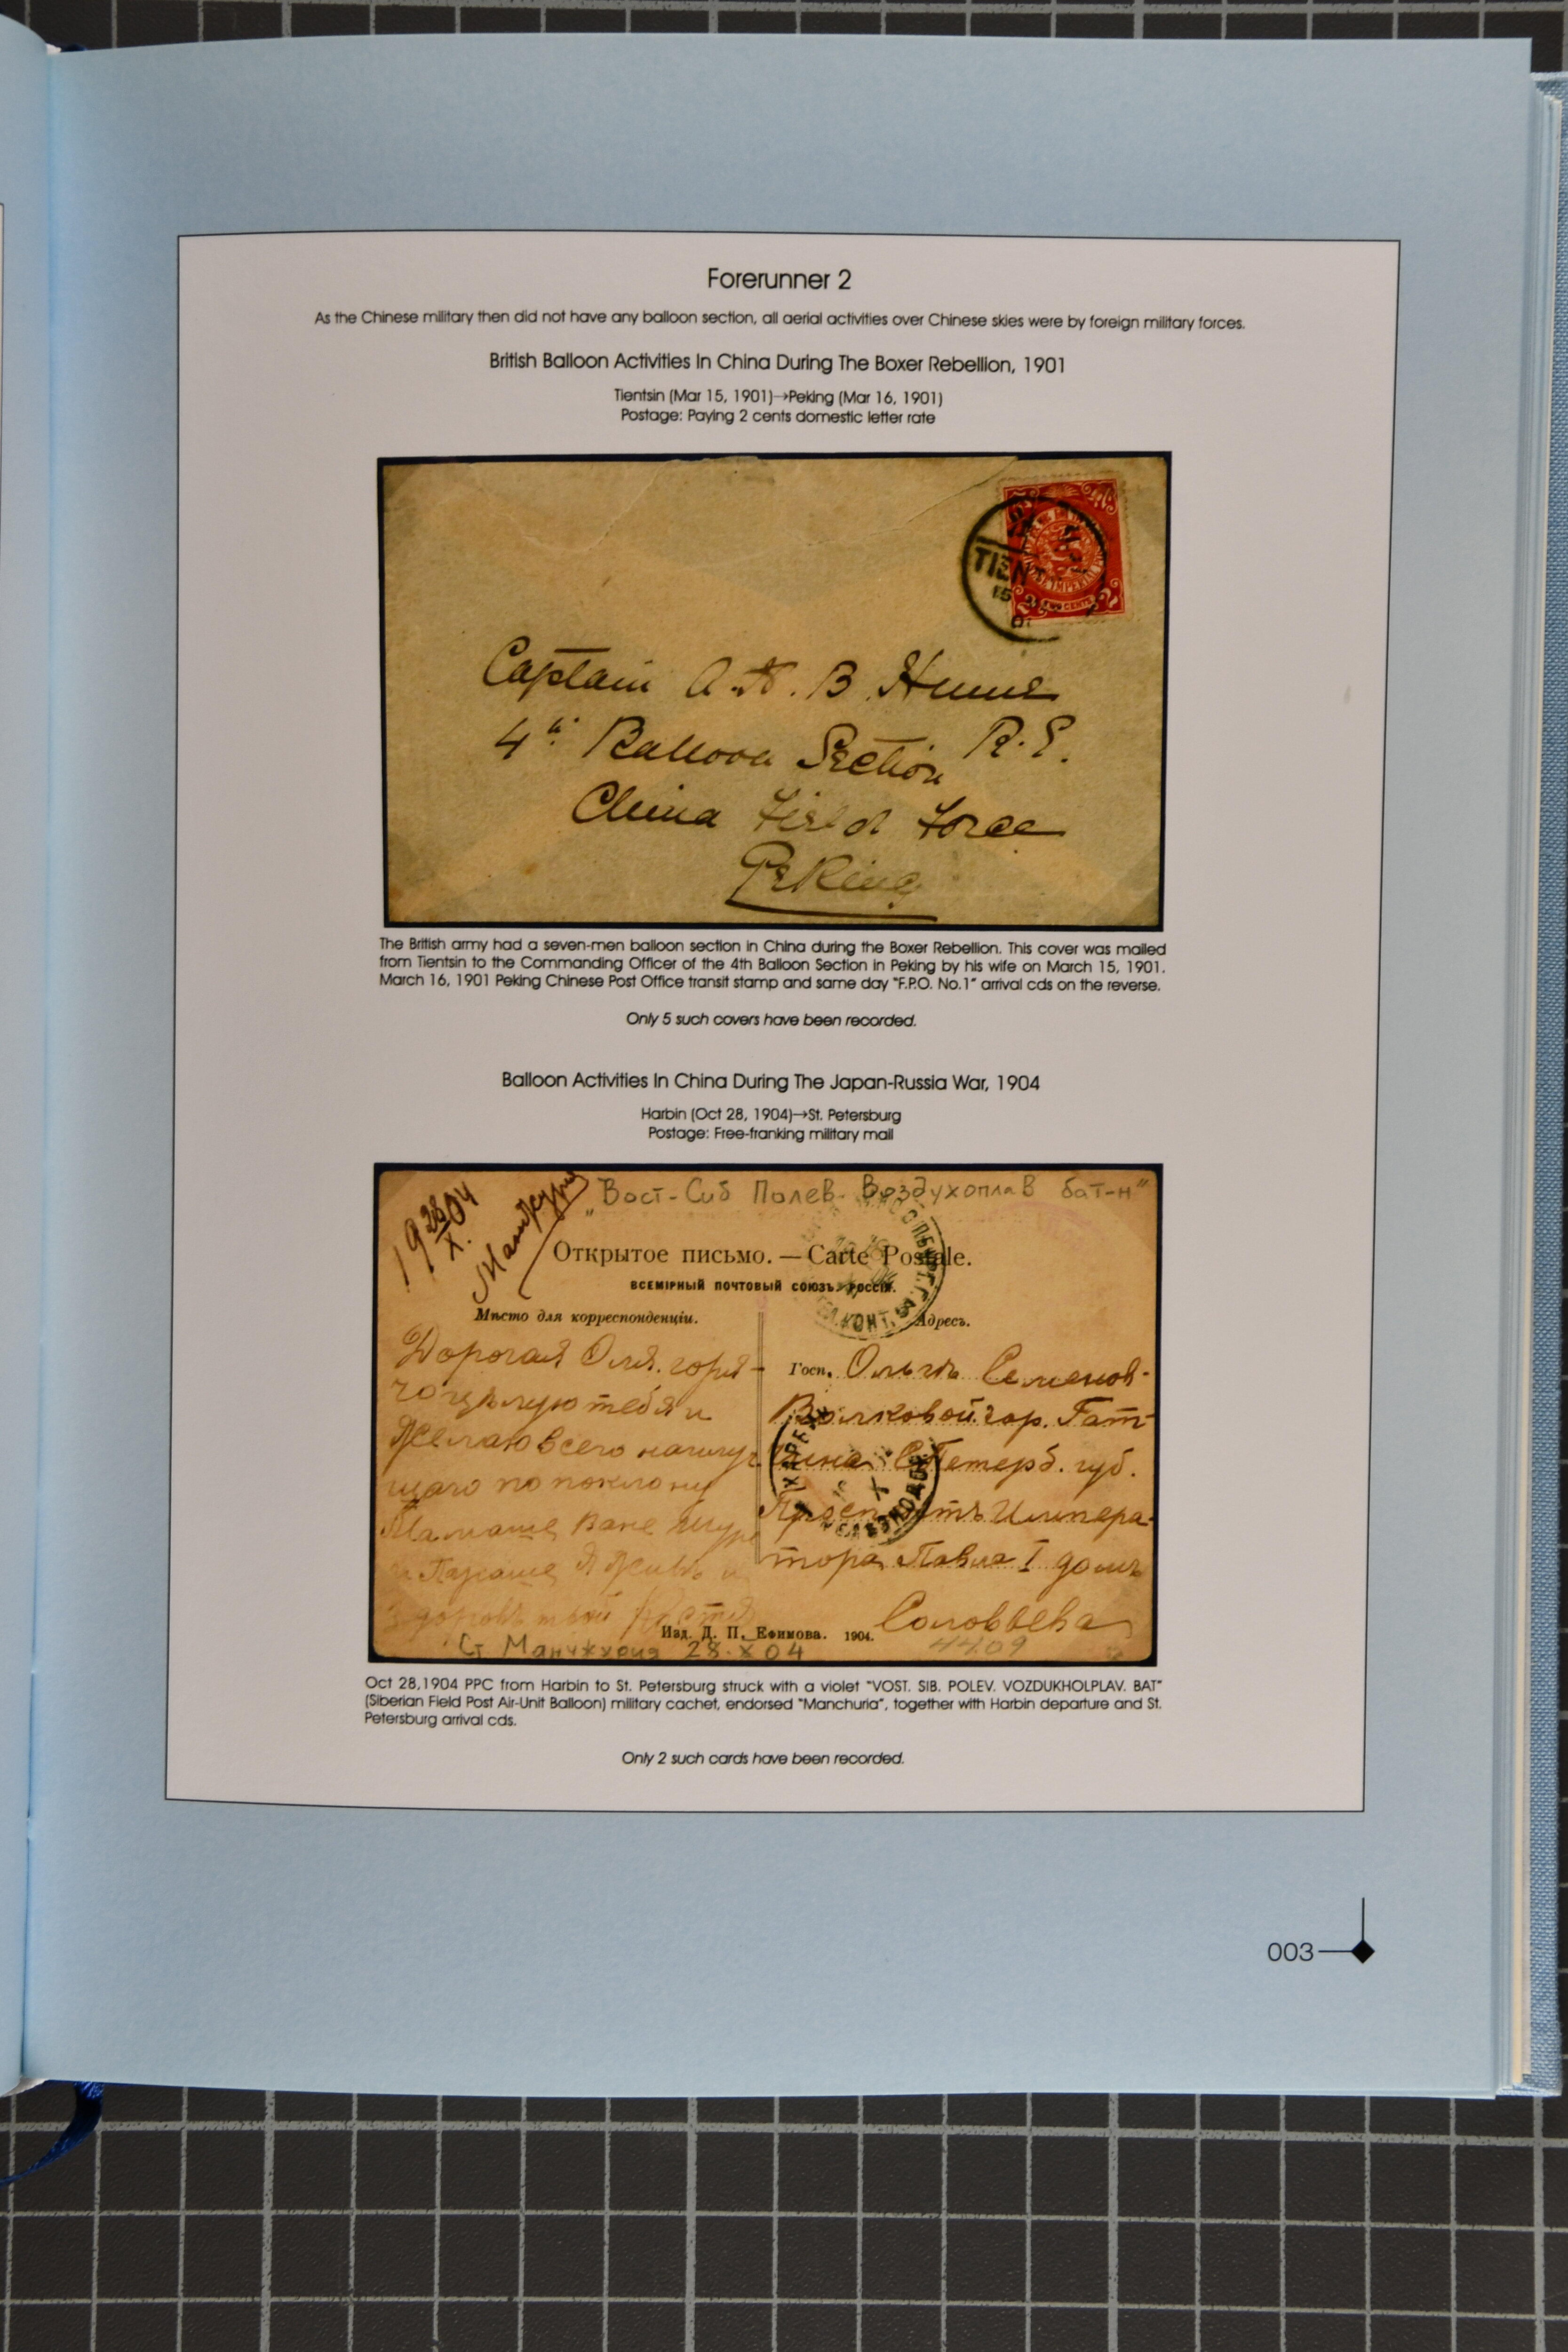 Forerunner 2
As the Chinese military then did not have any balloon section, all aerial activities over Chinese skies were by foreign military forces.
British Balloon Activities In China During The Boxer Rebellion, 1901
Tientsin (Mar 15, 1901)→Peking (Mar 16, 1901)
Postage: Paying 2 cents domestic letter rate
TIEN
15
Captain A. H. B. Hume
4th Balloon Section R.E.
China Field Force
Peking
The British army had a seven-men balloon section in China during the Boxer Rebellion. This cover was mailed
from Tientsin to the Commanding Officer of the 4th Balloon Section in Peking by his wife on March 15, 1901.
March 16, 1901 Peking Chinese Post Office transit stamp and same day "F.P.O. No.1" arrival cds on the reverse.
Only 5 such covers have been recorded.
Balloon Activities In China During The Japan-Russia War, 1904
Harbin (Oct 28, 1904)→St. Petersburg
Postage: Free-franking military mail
„Вост-Сиб Полев. Воздухоплав бат-н"
19 28/X 04
Манжурия
Открытое письмо. — Carte Postale.
ВСЕМІРНЫЙ ПОЧТОВЫЙ СОЮЗЪ. РОССІЯ.
Мѣсто для корреспонденціи.
Адресъ.
Дорогая Оля. горя-
чо цѣлую тебя и
желаю всего наилуч
шаго по поклону
Мамаше, Ване
Госп. Ольгѣ Семенов-
Волковой гор. Гат-
чина С.Петерб. губ.
Проспектъ Импера-
тора Павла I домъ
Соловьева
Изд. Д. П. Ефимова. 1904.
Ст Манчжурия 28.X 04
4409
Oct 28,1904 PPC from Harbin to St. Petersburg struck with a violet "VOST. SIB. POLEV. VOZDUKHOLPLAV. BAT"
(Siberian Field Post Air-Unit Balloon) military cachet, endorsed "Manchuria", together with Harbin departure and St.
Petersburg arrival cds.
Only 2 such cards have been recorded.
003